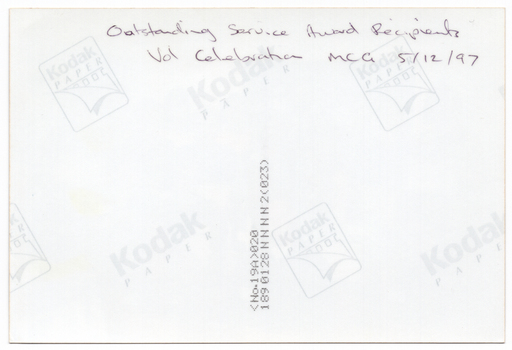 Outstanding Service Award Recipients
Vol Celebration MCG 5/12/97
Kodak
PAPER
Kodak
PAPER
Kodak
PAPER
<No.19A>020
189 0128 N N N N 2(023)
Kodak
PAPER
Kodak
PAPER